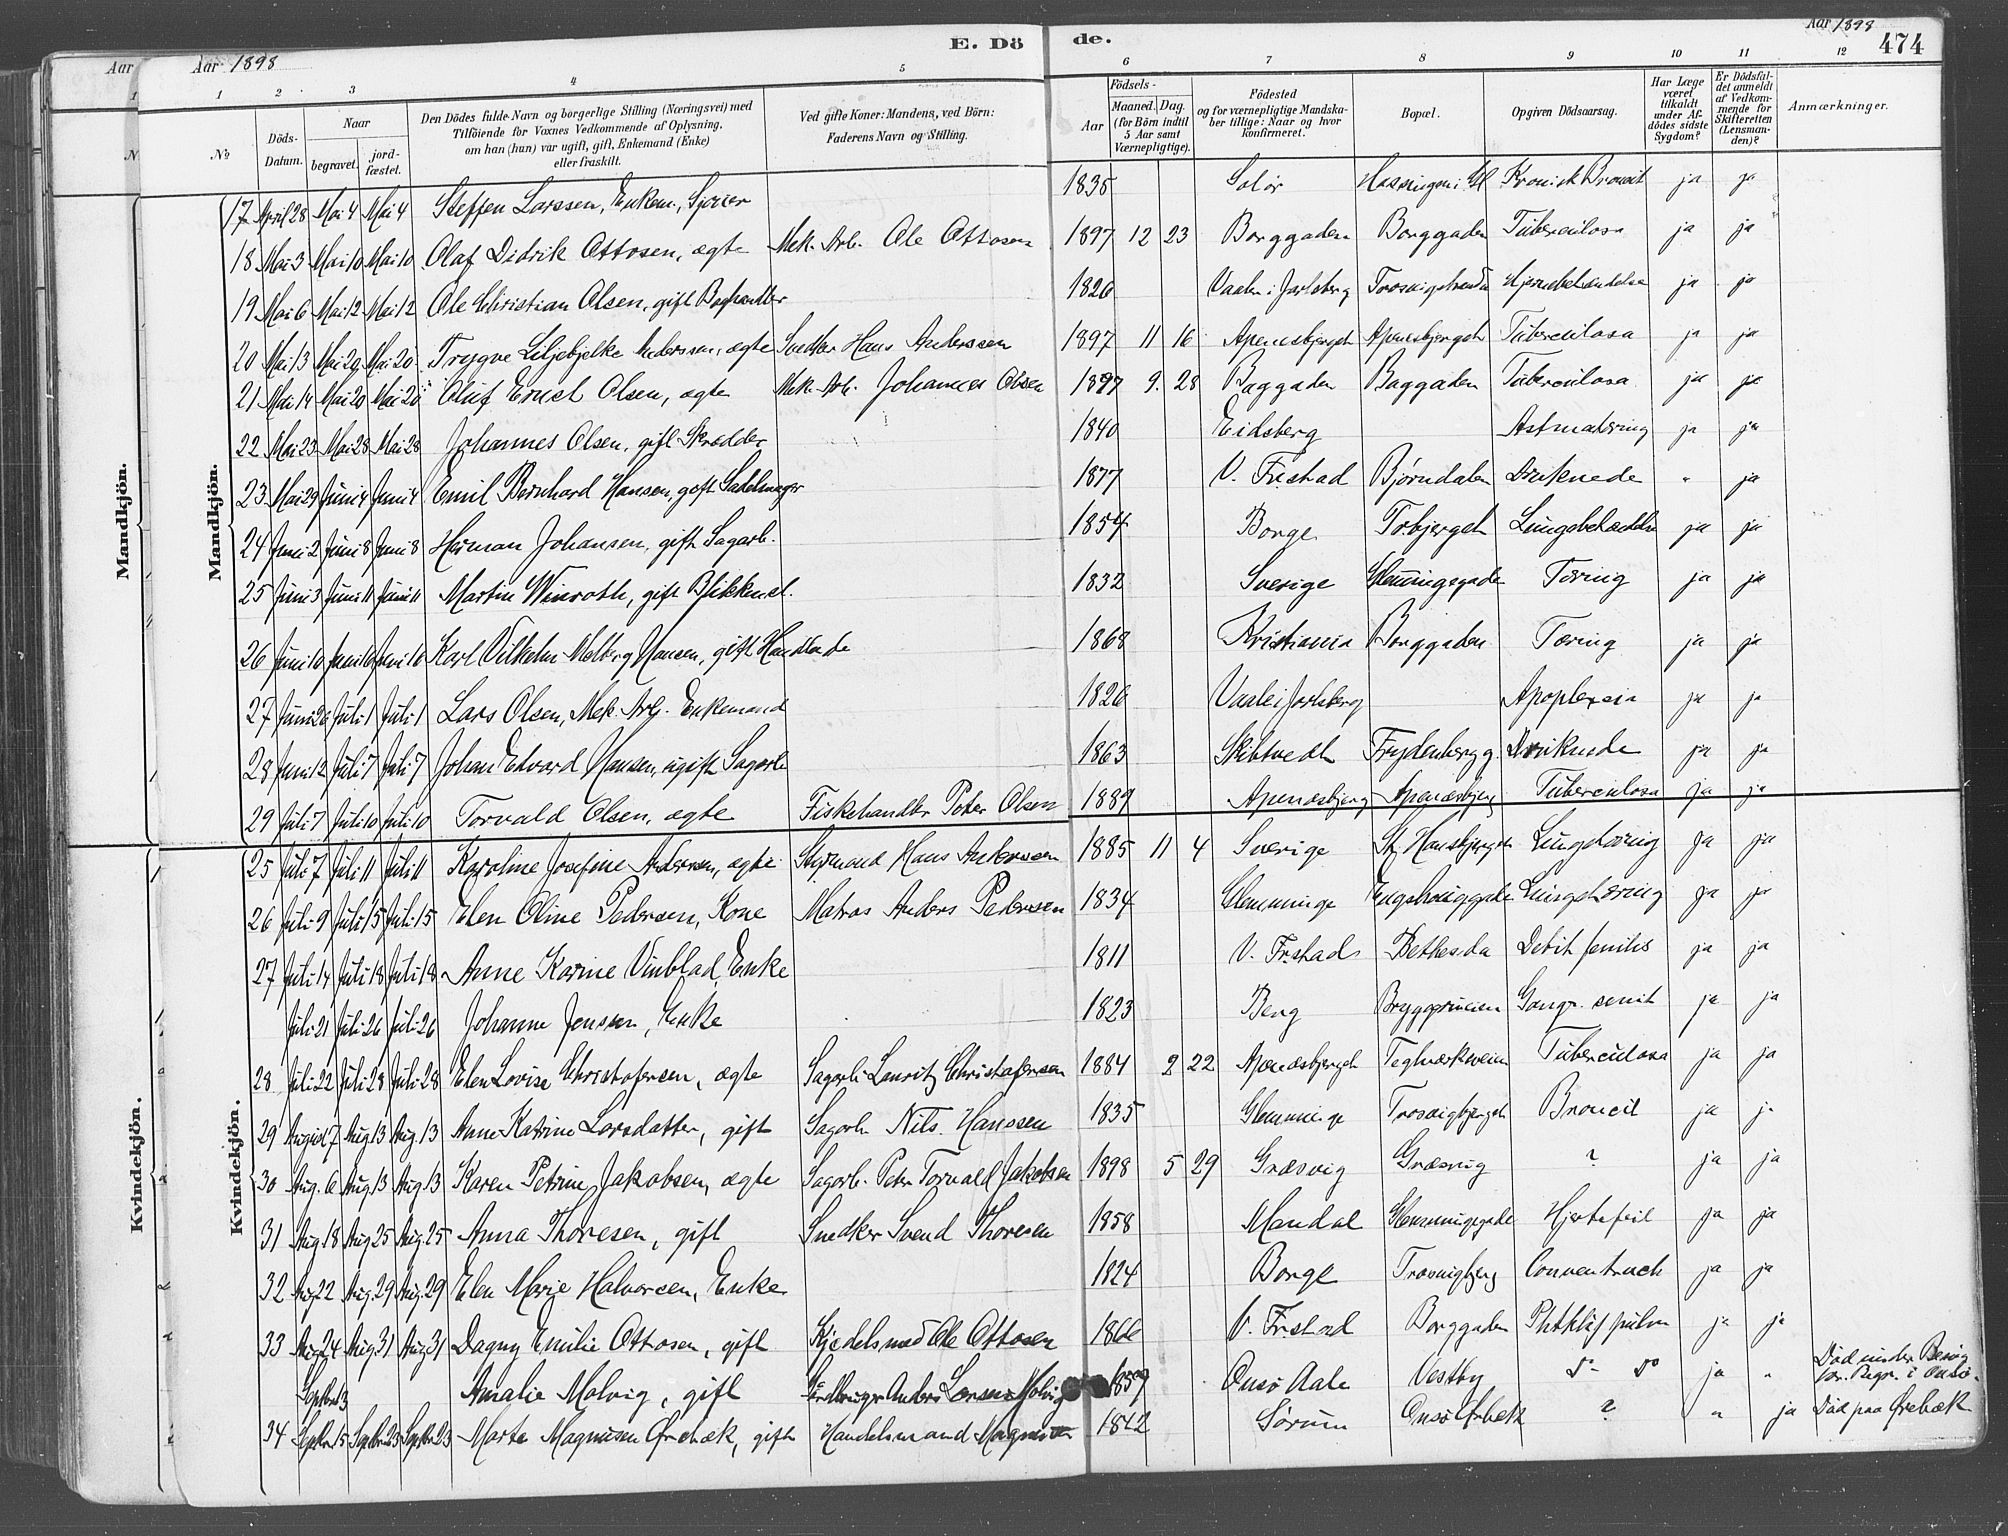 Aar
Aar 1898
E. Dö
de.
Aar 1898
474
1 2 3 4 5 6 7 8 9 10 11 12
No
Döds-Datum.
Naar
begravet.
jord-fæstet.
Den Dödes fulde Navn og borgerlige Stilling (Næringsvei) med
Tilföiende for Voxnes Vedkommende af Oplysning,
om han (hun) var ugift, gift, Enkemand (Enke)
eller fraskilt.
Ved gifte Koner: Mandens, ved Börn:
Faderens Navn og Stilling.
Födsels-
Aar
Maaned. Dag.
(for Börn indtil
5 Aar samt
Værnepligtige).
Födested
og for værnepligtige Mandska-
ber tillige: Naar og hvor
konfirmeret.
Bopæl.
Opgiven Dödsaarsag.
Har Læge
været
tilkaldt
under Af-
dödes sidste
Sygdom?
Er Dödsfal-
det anmeldt
af Vedkom-
mende for
Skifteretten
(Lensman-
den)?
Anmærkninger.
Mandkjön.
Mandkjön.
17 April 28 Mai 4 Mai 4 Steffen Larssen, Enkem., 1835 Solør Kronisk Bronkit ja ja
18 Mai 3 Mai 10 Mai 10 Olaf Didrik Ottosen, ægte Mek. Arb. Ole Ottosen 1897 12 23 Borggaden Borggaden Tuberculosa ja ja
19 Mai 6 Mai 12 Mai 12 Ole Christian Olsen, gift 1826 Vaale i Jarlsberg ja ja
20 Mai 13 Mai 20 Mai 20 Trygve Liljebjelke Anderssen, ægte Snedker Hans Anderssen 1897 11 16 Apenesbjerget Apenesbjerget Tuberculosa ja ja
21 Mai 14 Mai 20 Mai 20 Oluf Ernst Olsen, ægte Mek. Arb. Johannes Olsen 1897 9. 28 Baggaden Baggaden Tuberculosa ja ja
22 Mai 23 Mai 28 Mai 28 Johannes Olsen, gift Skrædder 1840 Eidsberg ja ja
23 Mai 29 Juni 4 Juni 4 Emil Bernhard Hansen, gift Sadelmager 1877 V. Frstad Bjørndalen Druknede " ja
24 Juni 2 Juni 8 Juni 8 Herman Johansen, gift Sagarb. 1854 Borge Torbjerget ja ja
25 Juni 3 Juni 11 Juni 11 Martin Winroth, gift Blikkensl. 1832 Sverige Glemmingegade Tæring ja ja
26 Juni 10 Juni 10 Juni 10 Karl Vilhelm Melberg Hansen, gift Handlende 1868 Kristiania Borggaden Tæring ja ja
27 Juni 26 Juli 1 Juli 1 Lars Olsen, Mek. Arb. Enkemand 1826 Vaale i Jarlsberg Apoplexia ja ja
28 Juni 12 Juli 7 Juli 7 Johan Edvard Hansen, ugift Sagarb 1863 Skibtvedt Frydenberg Druknede ja ja
29 Juli 7 Juli 10 Juli 10 Torvald Olsen, ægte Fiskehandler Peter Olsen 1889 Apenæsbjerg Apenæsbjerg Tuberculosa ja ja
Kvindekjön.
Kvindekjön.
25 Juli 7 Juli 11 Juli 11 Karoline Josefine Andersen, ægte Styrmand Hans Andersen 1885 11 4 Sverige St. Hansbjerget Lungetæring ja ja
26 Juli 9 Juli 15 Juli 15 Elen Oline Pedersen, Kone Matros Anders Pedersen 1834 Glemminge Lungetæring ja ja
27 Juli 14 Juli 18 Juli 18 Anne Karine Vinblad, Enke 1811 V. Frstad Bethesda Debit. senilis ja ja
Juli 21 Juli 26 Juli 26 Johanne Jensen, Enke 1823 Berg Gangr. senil ja ja
28 Juli 22 Juli 28 Juli 28 Elen Lovise Christofersen, ægte Sagarb. Lauritz Christofersen 1884 2 22 Apenæsbjerget Teglværksveien Tuberculosa ja ja
29 August 7 Aug. 13 Aug. 13 Anne Katrine Larsdatter, gift Sagarb. Nils Hanssen 1835 Glemminge Trosvigbjerget Broncit ja ja
30 Aug. 6 Aug 13 Aug 13 Karen Petrine Jakobsen, ægte Sagarb. Peter Torvald Jakobsen 1898 5 29 Græsvig Græsvig ? ja ja
31 Aug. 18 Aug. 25 Aug. 25 Anna Thoresen, gift Snedker Svend Thoresen 1858 Mandal Glemmingegade Hjertefeil ja ja
32 Aug 22 Aug. 29 Aug. 29 Elen Marie Halvorsen, Enke 1824 Borge Trosvigberg ja ja
33 Aug. 24 Aug 31 Aug 31 Dagny Emilie Ottosen, gift Kjedelsmed Ole Ottosen 1866 V. Frstad Borggaden pulm ja ja
Septbr 3 Amalie Molvig, gift Anders Larsen Molvig 1859 Onsø Aale Vestby do do ja " Død under Besøg i Onsø.
34 Septbr 15 Septbr 23 Septbr 23 Marte Magnusen Ørebæk, gift Handelsmand Magnusen 1842 Sørum Onsø Ørebæk ? " ja Død paa Ørebæk